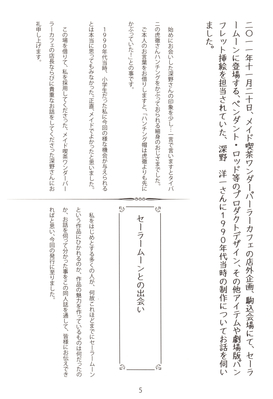 二〇一一年十一月二十日、メイド喫茶ワンダーパーラーカフェの店外企画、駒込会場にて、セーラ
ームーンに登場する、ペンダント・ロッド等のプロダクトデザイン、その他アイテムや劇場版パン
フレット挿絵を担当されていた、深野 洋一さんに1990年代当時の制作についてお話を伺い
ました。
始めにお会いした深野さんの印象を少し…一言で言いますとタイバ
ニの虎徹さんハンチングをかぶっておられる細身のおじさまでした。
ご本人のお言葉をお借りしますと、「ハンチング帽は虎徹よりも先に
かぶっていた…」との事です。
1990年代当時、小学生だった私に今回の様な機会が与えられる
とは本当に思ってもみなかった。正直、メイドでよかったと思いました。
この場を借りて、私を採用してくださった、メイド喫茶ワンダーパー
ラーカフェの店長ならびに貴重なお話をしてくださった深野さんにお
礼申し上げます。
セーラームーンとの出会い
私をはじめとする多くの人が、何故これほどまでにセーラームーン
という作品にひかれるのか、作品の魅力を作っているものは何だったの
か、お話を伺って分かった事をこの同人誌を通して、皆様にお伝えでき
ればと思い、今回の発行に至りました。
5